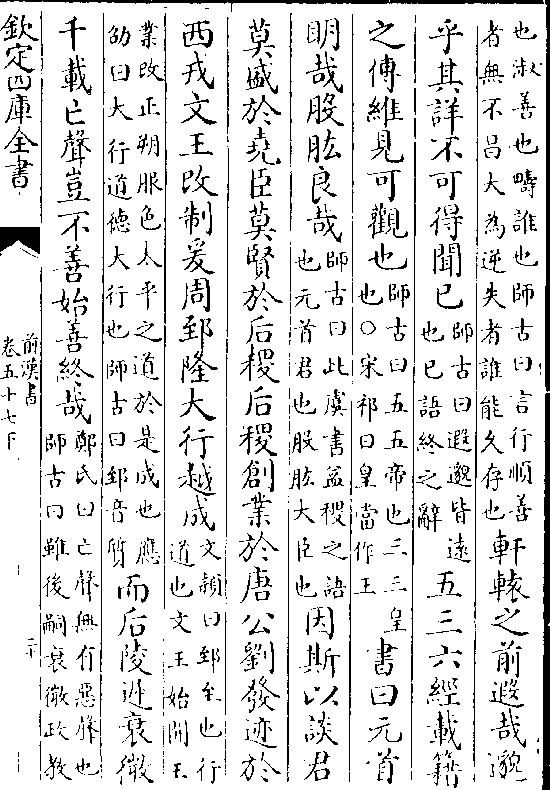 也淑善也疇誰也師古曰言行順善
者無不昌大為逆失者誰能久存也
軒轅之前遐哉邈
乎其詳不可得聞已
師古曰遐邈皆遠
也已語終之辭
五三六經載籍
之傳維見可觀也
師古曰五五帝也三三皇
也○宋祁曰皇當作王
書曰元首
明哉股肱良哉
師古曰此虞書益稷之語
也元首君也股肱大臣也
因斯以談君
莫盛於堯臣莫賢於后稷后稷創業於唐公劉發迹於
西戎文王改制爰周郅隆大行越成
文頴曰郅至也行
道也文王始開王
業改正朔服色太平之道於是成也應
劭曰大行道德大行也師古曰郅音質
而后陵遲衰微
千載亡聲豈不善始善終哉
鄭氏曰亡聲無有惡聲也
師古曰雖後嗣衰微政教
欽定四庫全書
前漢書
卷五十七下